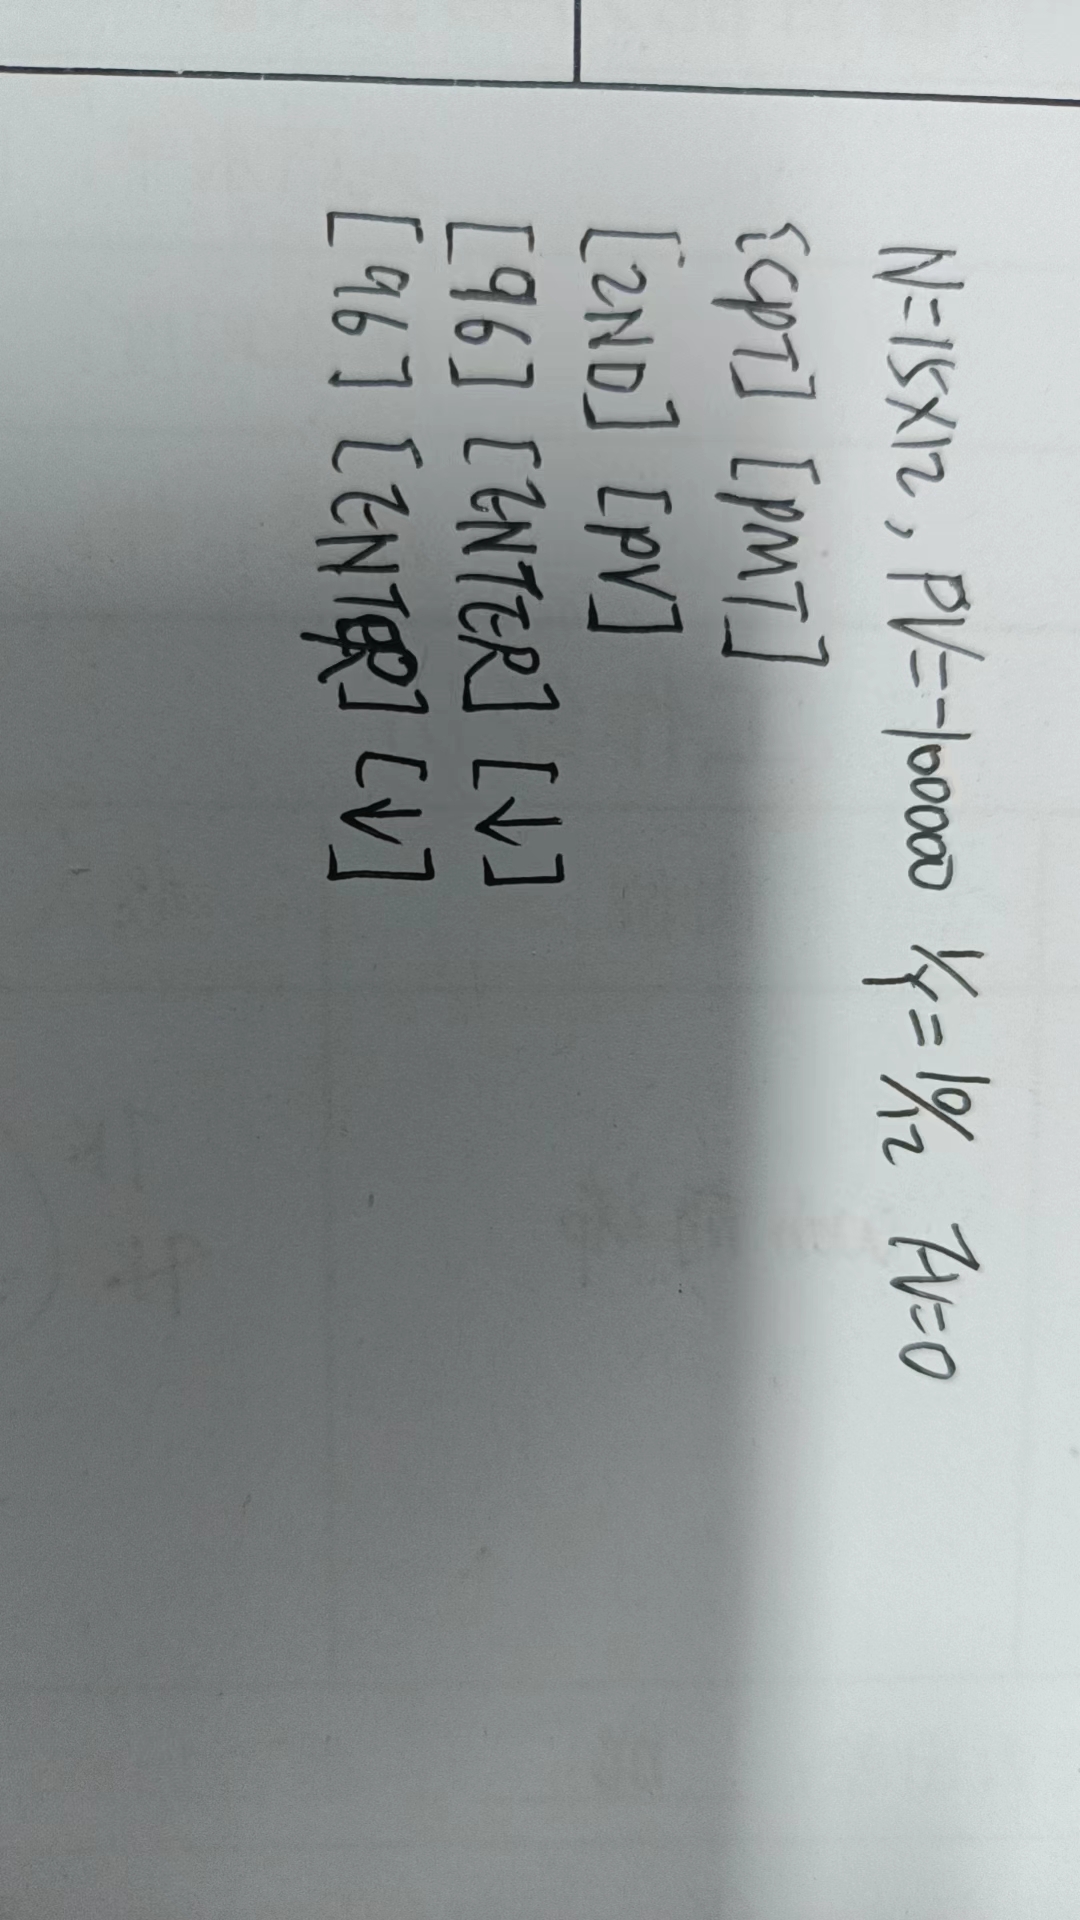 N=15×12, PV=-100000 I/Y=10/12 FV=0
[CPT] [PMT]
[2ND] [PV]
[96] [ENTER] [↓]
[96] [ENTER] [↓]